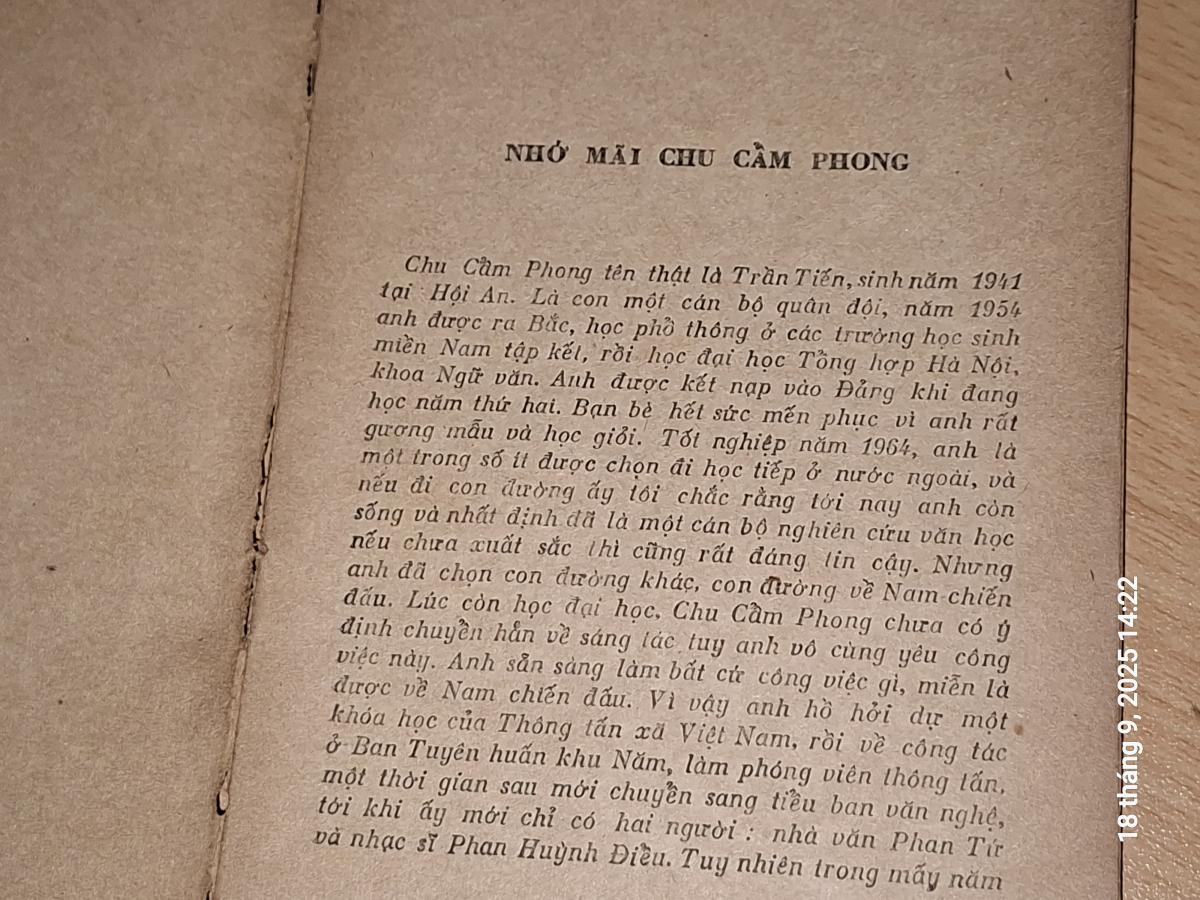 NHỚ MÃI CHU CẦM PHONG
Chu Cầm Phong tên thật là Trần Tiến, sinh năm 1941
tại Hội An. Là con một cán bộ quân đội, năm 1954
anh được ra Bắc, học phổ thông ở các trường học sinh
miền Nam tập kết, rồi học đại học Tổng hợp Hà Nội,
khoa Ngữ văn. Anh được kết nạp vào Đảng khi đang
học năm thứ hai. Bạn bè hết sức mến phục vì anh rất
gương mẫu và học giỏi. Tốt nghiệp năm 1964, anh là
một trong số ít được chọn đi học tiếp ở nước ngoài, và
nếu đi con đường ấy tôi chắc rằng tới nay anh còn
sống và nhất định đã là một cán bộ nghiên cứu văn học
nếu chưa xuất sắc thì cũng rất đáng tin cậy. Nhưng
anh đã chọn con đường khác, con đường về Nam chiến
đấu. Lúc còn học đại học, Chu Cầm Phong chưa có ý
định chuyển hẳn về sáng tác tuy anh vô cùng yêu công
việc này. Anh sẵn sàng làm bất cứ công việc gì, miễn là
được về Nam chiến đấu. Vì vậy anh hồ hởi dự một
khóa học của Thông tấn xã Việt Nam, rồi về công tác
ở Ban Tuyên huấn khu Năm, làm phóng viên thông tấn,
một thời gian sau mới chuyển sang tiểu ban văn nghệ,
tới khi ấy mới chỉ có hai người : nhà văn Phan Tứ
và nhạc sĩ Phan Huỳnh Điểu. Tuy nhiên trong mấy năm
18 tháng 9, 2025 14:22